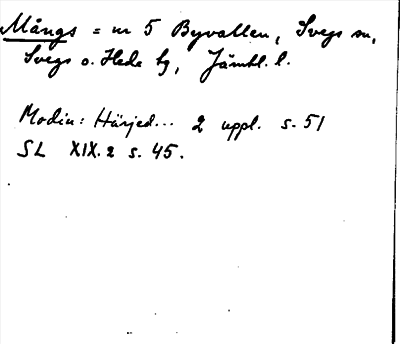 Mångs = nr 5 Byvallen, Svegs sn,
Svegs o. Hede tg, Jämtl. l.
Modin: Härjed... 2 uppl. s. 51
SL XIX.2 s. 45.